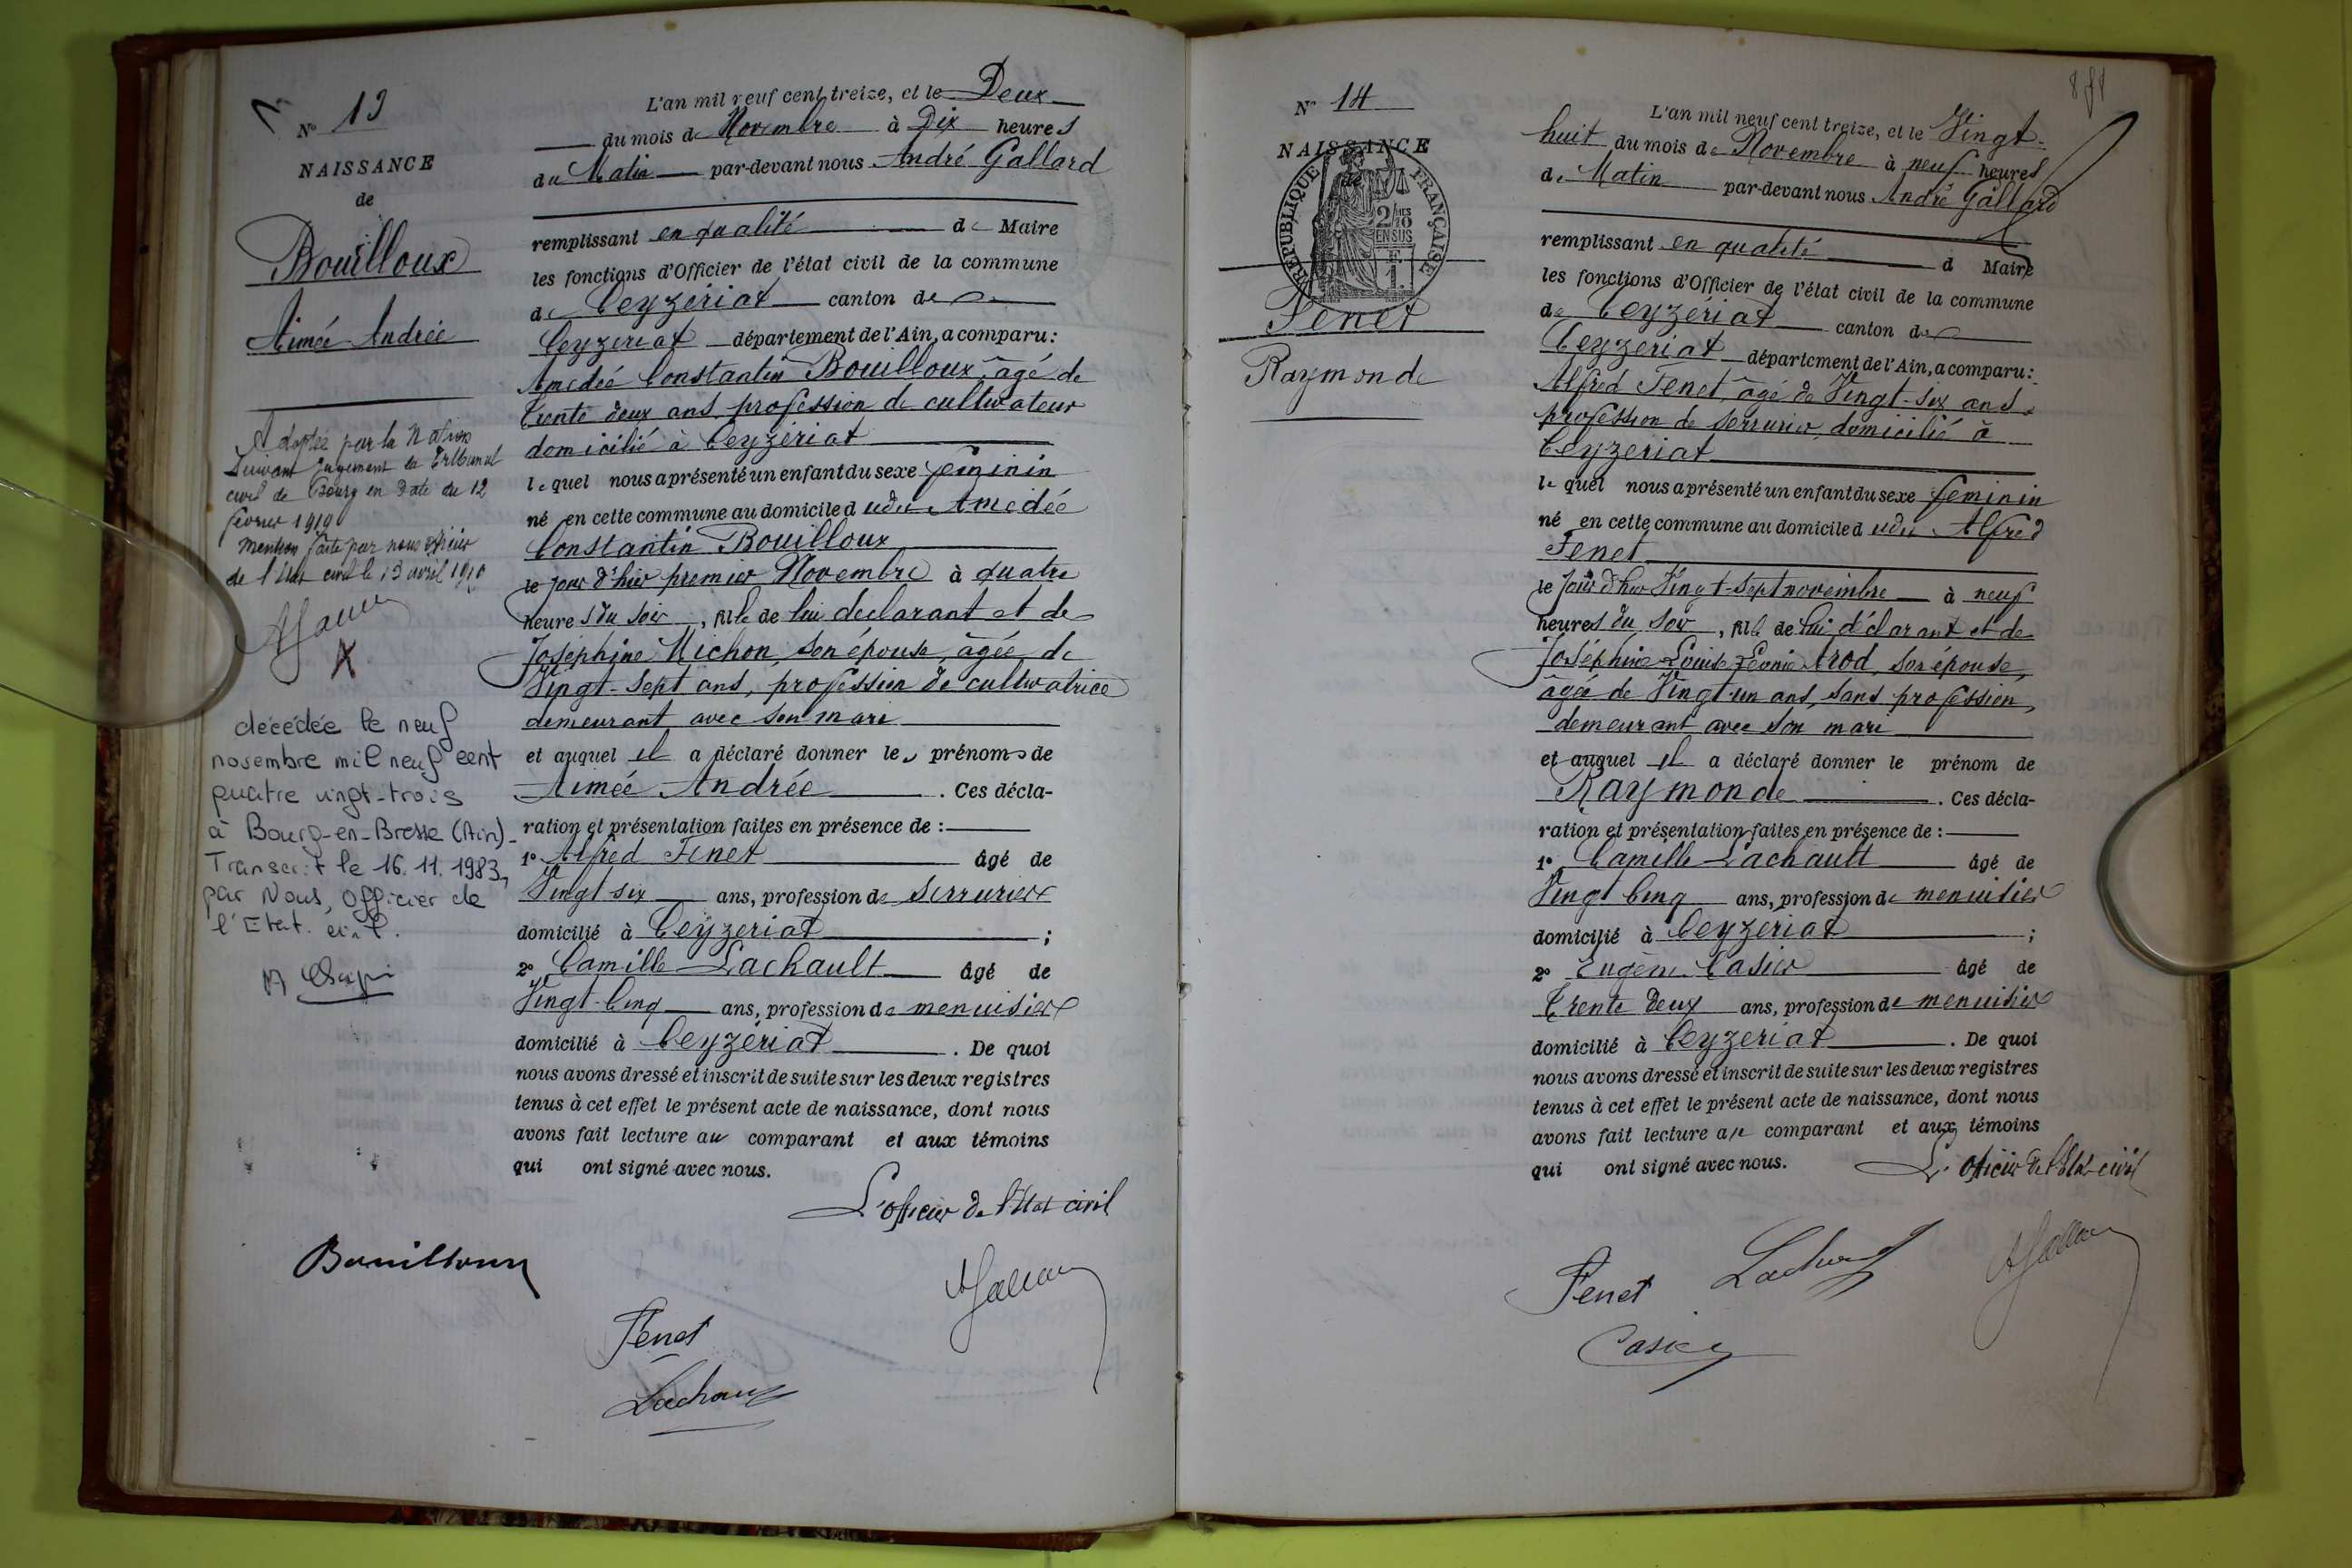 N° 13
NAISSANCE
de
Bouilloux
Aimée Andrée
Adoptée par la Nation
Suivant jugement du Tribunal
civil de Bourg en date du 12
février 1919
Mention faite par nous officier
de l'état civil le 13 avril 1919
décédée le neuf
novembre mil neuf cent
quatre vingt-trois
à Bourg-en-Bresse (Ain)-
Transcrit le 16.11.1983,
par Nous, Officier de
l'Etat civil.
L'an mil neuf cent treize, et le Deux
du mois de Novembre à Dix heures
du Matin par-devant nous André Gallard
remplissant en qualité de Maire
les fonctions d'Officier de l'état civil de la commune
de Ceyzériat canton de
Ceyzeriat département de l'Ain, a comparu:
Amedée Constantin Bouilloux, âgé de
trente deux ans, profession de cultivateur
domicilié à Ceyzériat
lequel nous a présenté un enfant du sexe feminin
né en cette commune au domicile dudit Amedée
Constantin Bouilloux
le jour d'hier premier Novembre à quatre
heures du soir, fille de lui declarant et de
Joséphine Michon, son épouse, âgée de
Vingt-sept ans, profession de cultivatrice
demeurant avec son mari
et auquel il a déclaré donner les prénoms de
Aimée Andrée. Ces décla-
ration et présentation faites en présence de :
1° Alfred Fenet âgé de
Vingt six ans, profession de serrurier
domicilié à Ceyzeriat ;
2° Camille Lachault âgé de
Vingt-Cinq ans, profession de menuisier
domicilié à Ceyzériat. De quoi
nous avons dressé et inscrit de suite sur les deux registres
tenus à cet effet le présent acte de naissance, dont nous
avons fait lecture au comparant et aux témoins
qui ont signé avec nous.
L'officier de l'Etat civil
Bouilloux
Fenet
Lachault
N° 14
NAISSANCE
de
RÉPUBLIQUE FRANÇAISE
2/10 EN SUS
F. 1.
Fenet
Raymonde
L'an mil neuf cent treize, et le Vingt-
huit du mois de Novembre à neuf heures
du Matin par-devant nous André Gallard
remplissant en qualité d Maire
les fonctions d'Officier de l'état civil de la commune
de Ceyzériat canton de
Ceyzeriat département de l'Ain, a comparu:
Alfred Fenet, âgé de Vingt-six ans,
profession de serrurier, domicilié à
Ceyzeriat
lequel nous a présenté un enfant du sexe feminin
né en cette commune au domicile dudit Alfred
Fenet
le jour d'hier Vingt-sept novembre à neuf
heures du soir, fille de lui déclarant et de
Joséphine Louise Léonie Arod, son épouse,
âgée de Vingt-un ans, sans profession,
demeurant avec son mari
et auquel il a déclaré donner le prénom de
Raymonde. Ces décla-
ration et présentation faites en présence de :
1° Camille Lachault âgé de
Vingt Cinq ans, profession de menuisier
domicilié à Ceyzériat ;
2° Eugène Casier âgé de
Trente Deux ans, profession de menuisier
domicilié à Ceyzeriat. De quoi
nous avons dressé et inscrit de suite sur les deux registres
tenus à cet effet le présent acte de naissance, dont nous
avons fait lecture au comparant et aux témoins
qui ont signé avec nous.
L'officier de l'Etat civil
Fenet
Lachault
Casier